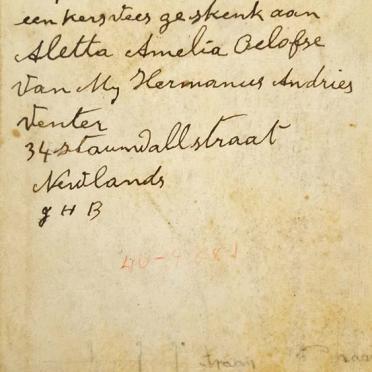 een kersvees geskenk aan
Aletta Amelia Oelofse
Van My Hermanus Andries
Venter
34 straat
Newlands
g H B